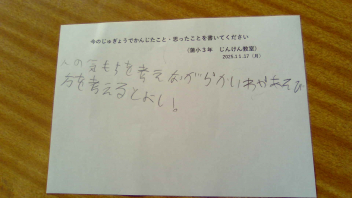 今のじゅぎょうでかんじたこと・思ったことを書いてください
（南小3年　じんけん教室）
2025.11.17（月）
人の気もちを考えながらかいわやあそび
方を考えるとよい！